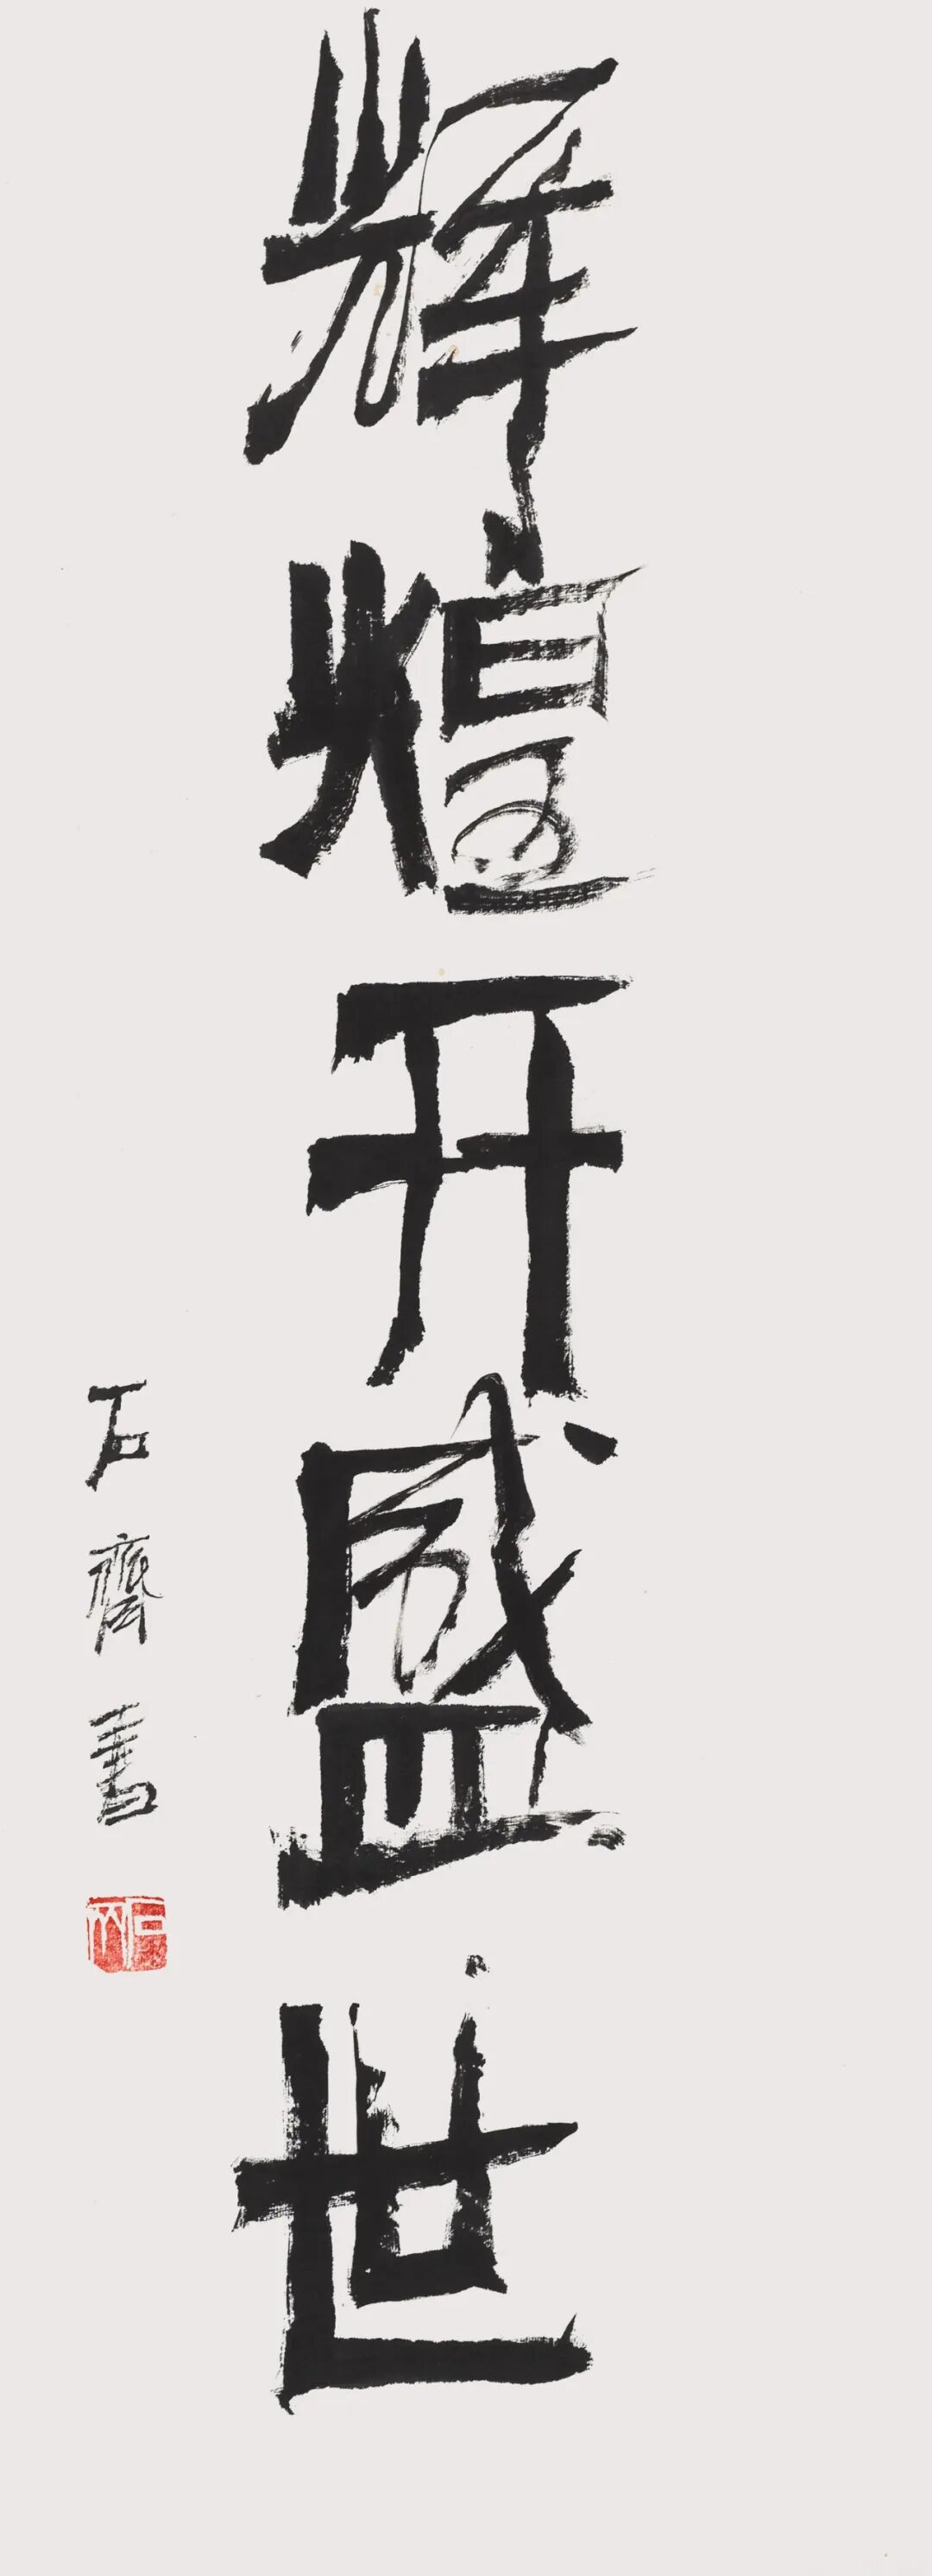 辉煌开盛世
石齊書